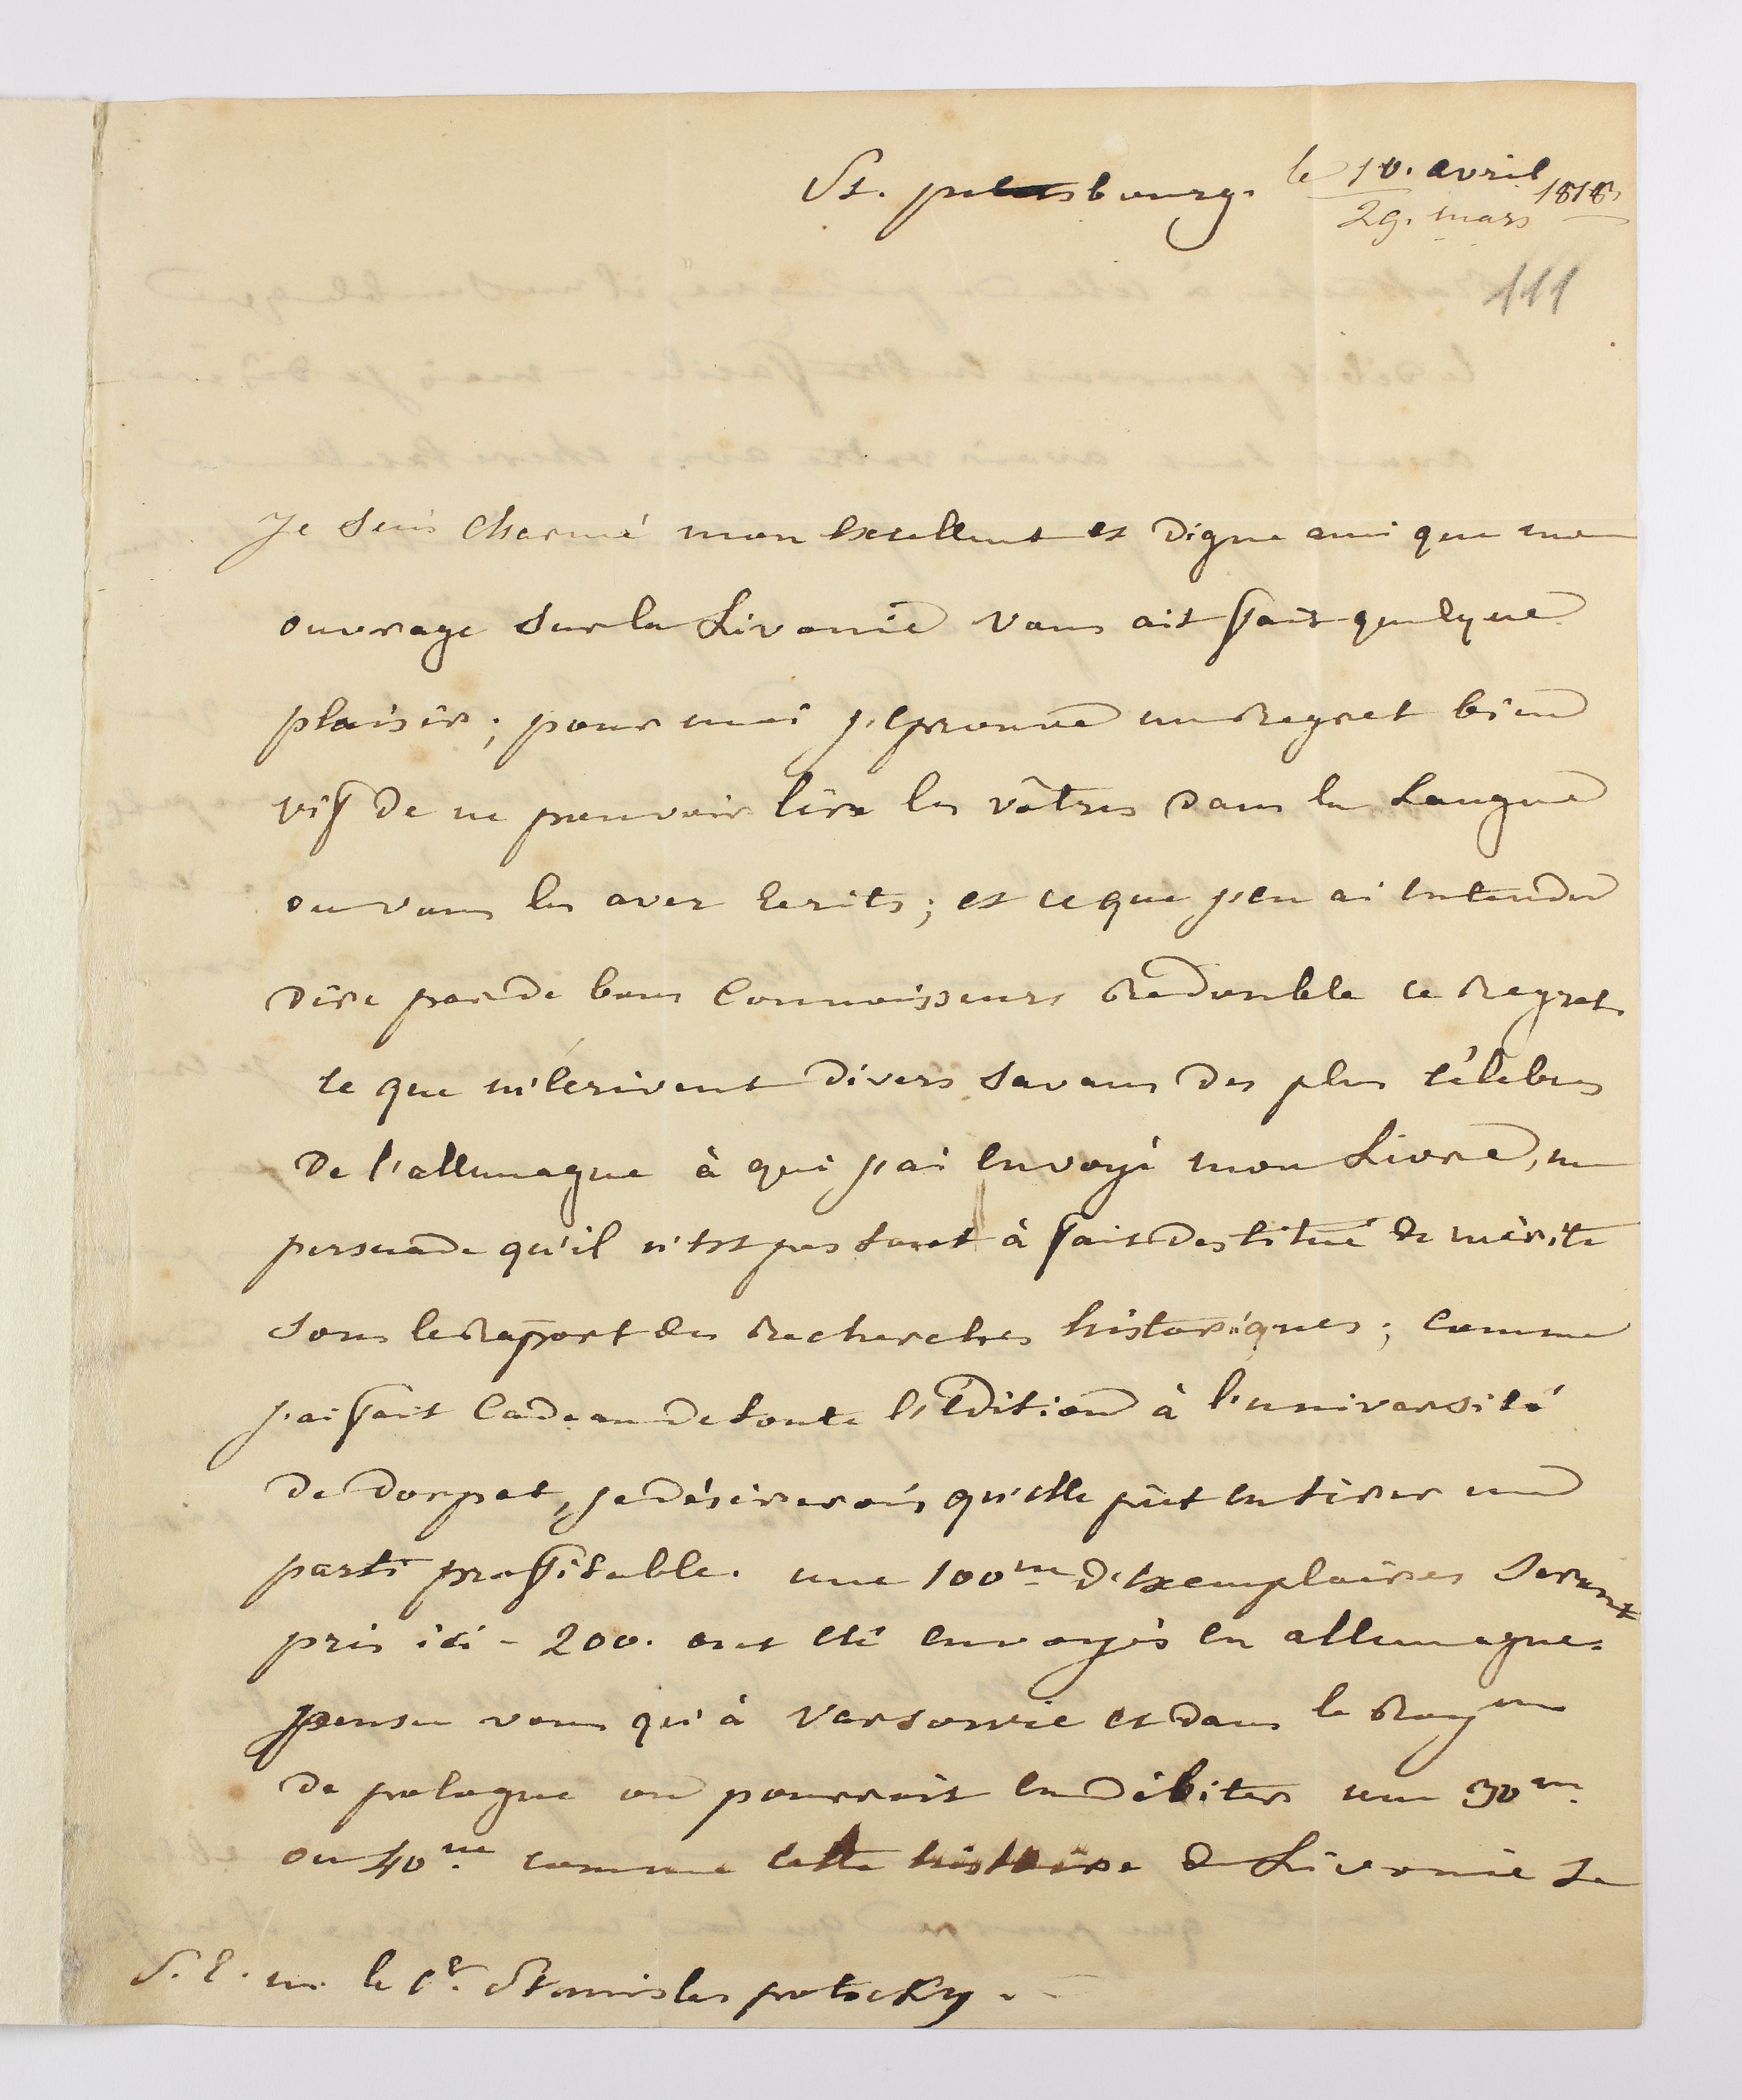 St. petersbourg. le 10. avril 1818
29. mars
111
Je suis charmé mon excellent et digne ami que mon
ouvrage sur la Livonie vous ait fait quelque
plaisir; pour moi j'eprouve un regret bien
vif de ne pouvoir lire les vôtres dans la Langue
ou vous les avez ecrits; et ce que j'en ai entendu
dire par de bons connoisseurs redouble ce regret.
ce que m'écrivent divers savans des plus célebres
de l'allemagne à qui j'ai envoyé mon Livre, me
persuade qu'il n'est pas tout à fait destitué de mérite
sous le rapport des recherches historiques; comme
j'ai fait cadeau de toute l'édition à l'université
de dorpat, je désirerois qu'elle pût en tirer un
parti profitable. une 100.ne d'exemplaires seront
pris ici - 200. ont eté envoyés en allemagne.
pensez vous qu'à varsovie et dans le Roy.me
de pologne on pourroit en débiter une 30.ne
ou 40.ne comme cette histoire de Livonie se
S. E. m. le C.te Stanislas potocky.